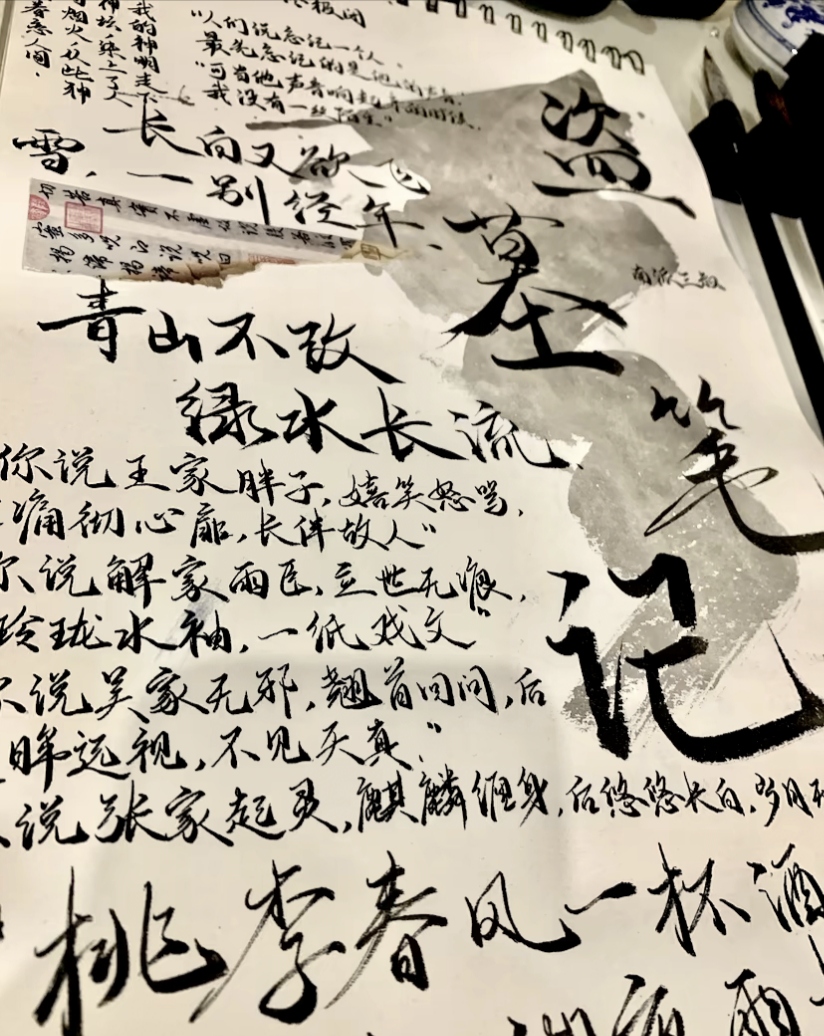 我的神明走下
神坛，染上了人
间烟火，从此神
著恋人间。
"人们说忘记一个人，
最先忘记的是他的声音，
"可当他声音响起来的时候，
我没有一丝陌生。"
长白又欲飞
雪，一别经年、
青山不改
绿水长流、
你说王家胖子，嬉笑怒骂，
痛彻心扉，长伴故人"
你说解家雨臣，立世无痕，
玲珑水袖，一纸戏文"
你说吴家无邪，翘首回问，后
眸远视，不见天真。"
说张家起灵，麒麟缠身，后悠悠长白，岁月
桃李春风一杯酒
江湖夜雨
盗墓笔记
南派三叔